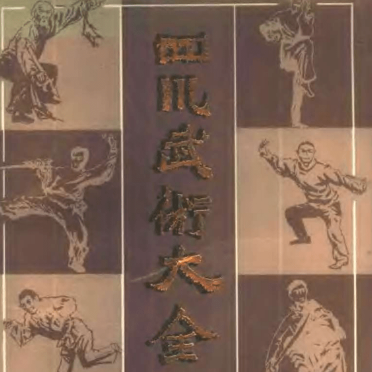 四川武術大全